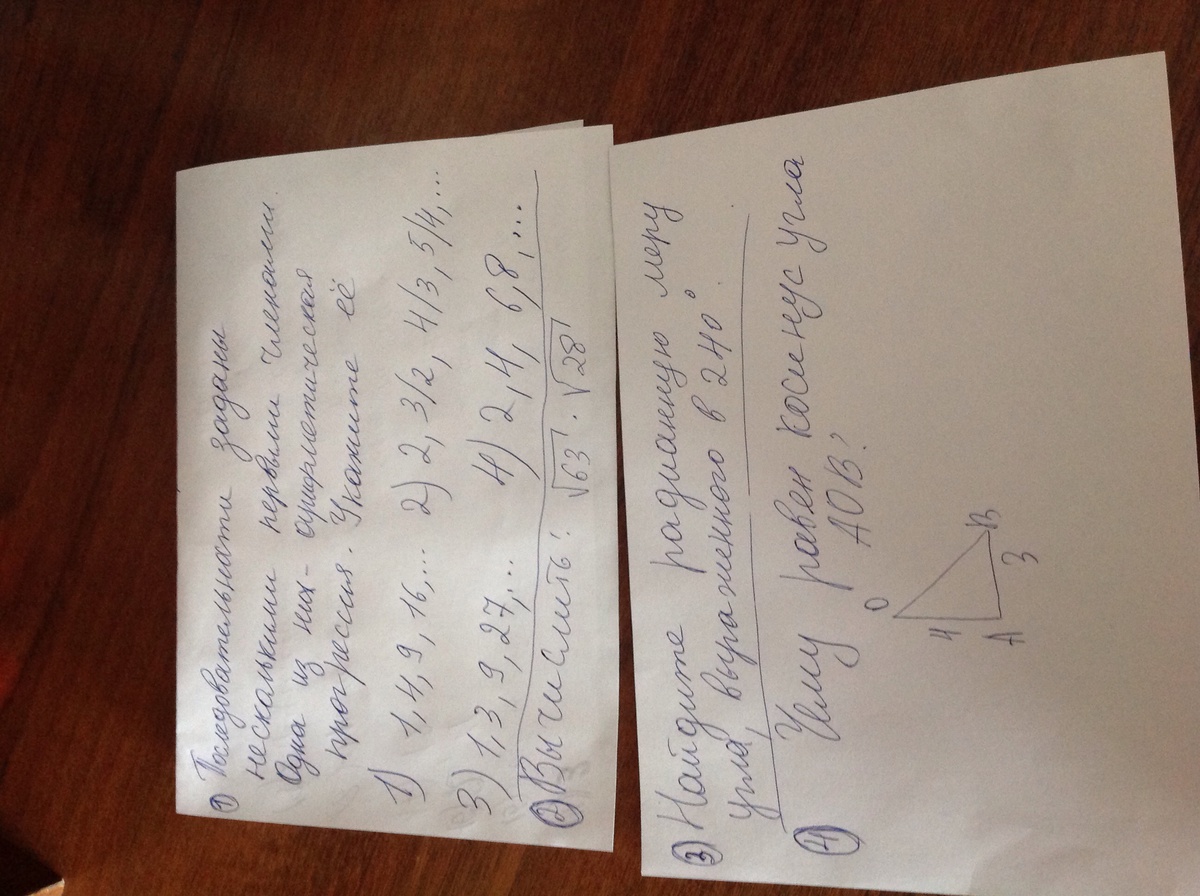 ① Последовательности заданы
несколькими первыми членами.
Одна из них - арифметическая
прогрессия. Укажите её
1) 1, 4, 9, 16,... 2) 2, 3/2, 4/3, 5/4,...
3) 1, 3, 9, 27,... 4) 2, 4, 6, 8,...
② Вычислить: √63 · √28
③ Найдите радианную меру
угла, выраженного в 240°.
④ Чему равен косинус угла
АОВ?
О
4
А
3
В